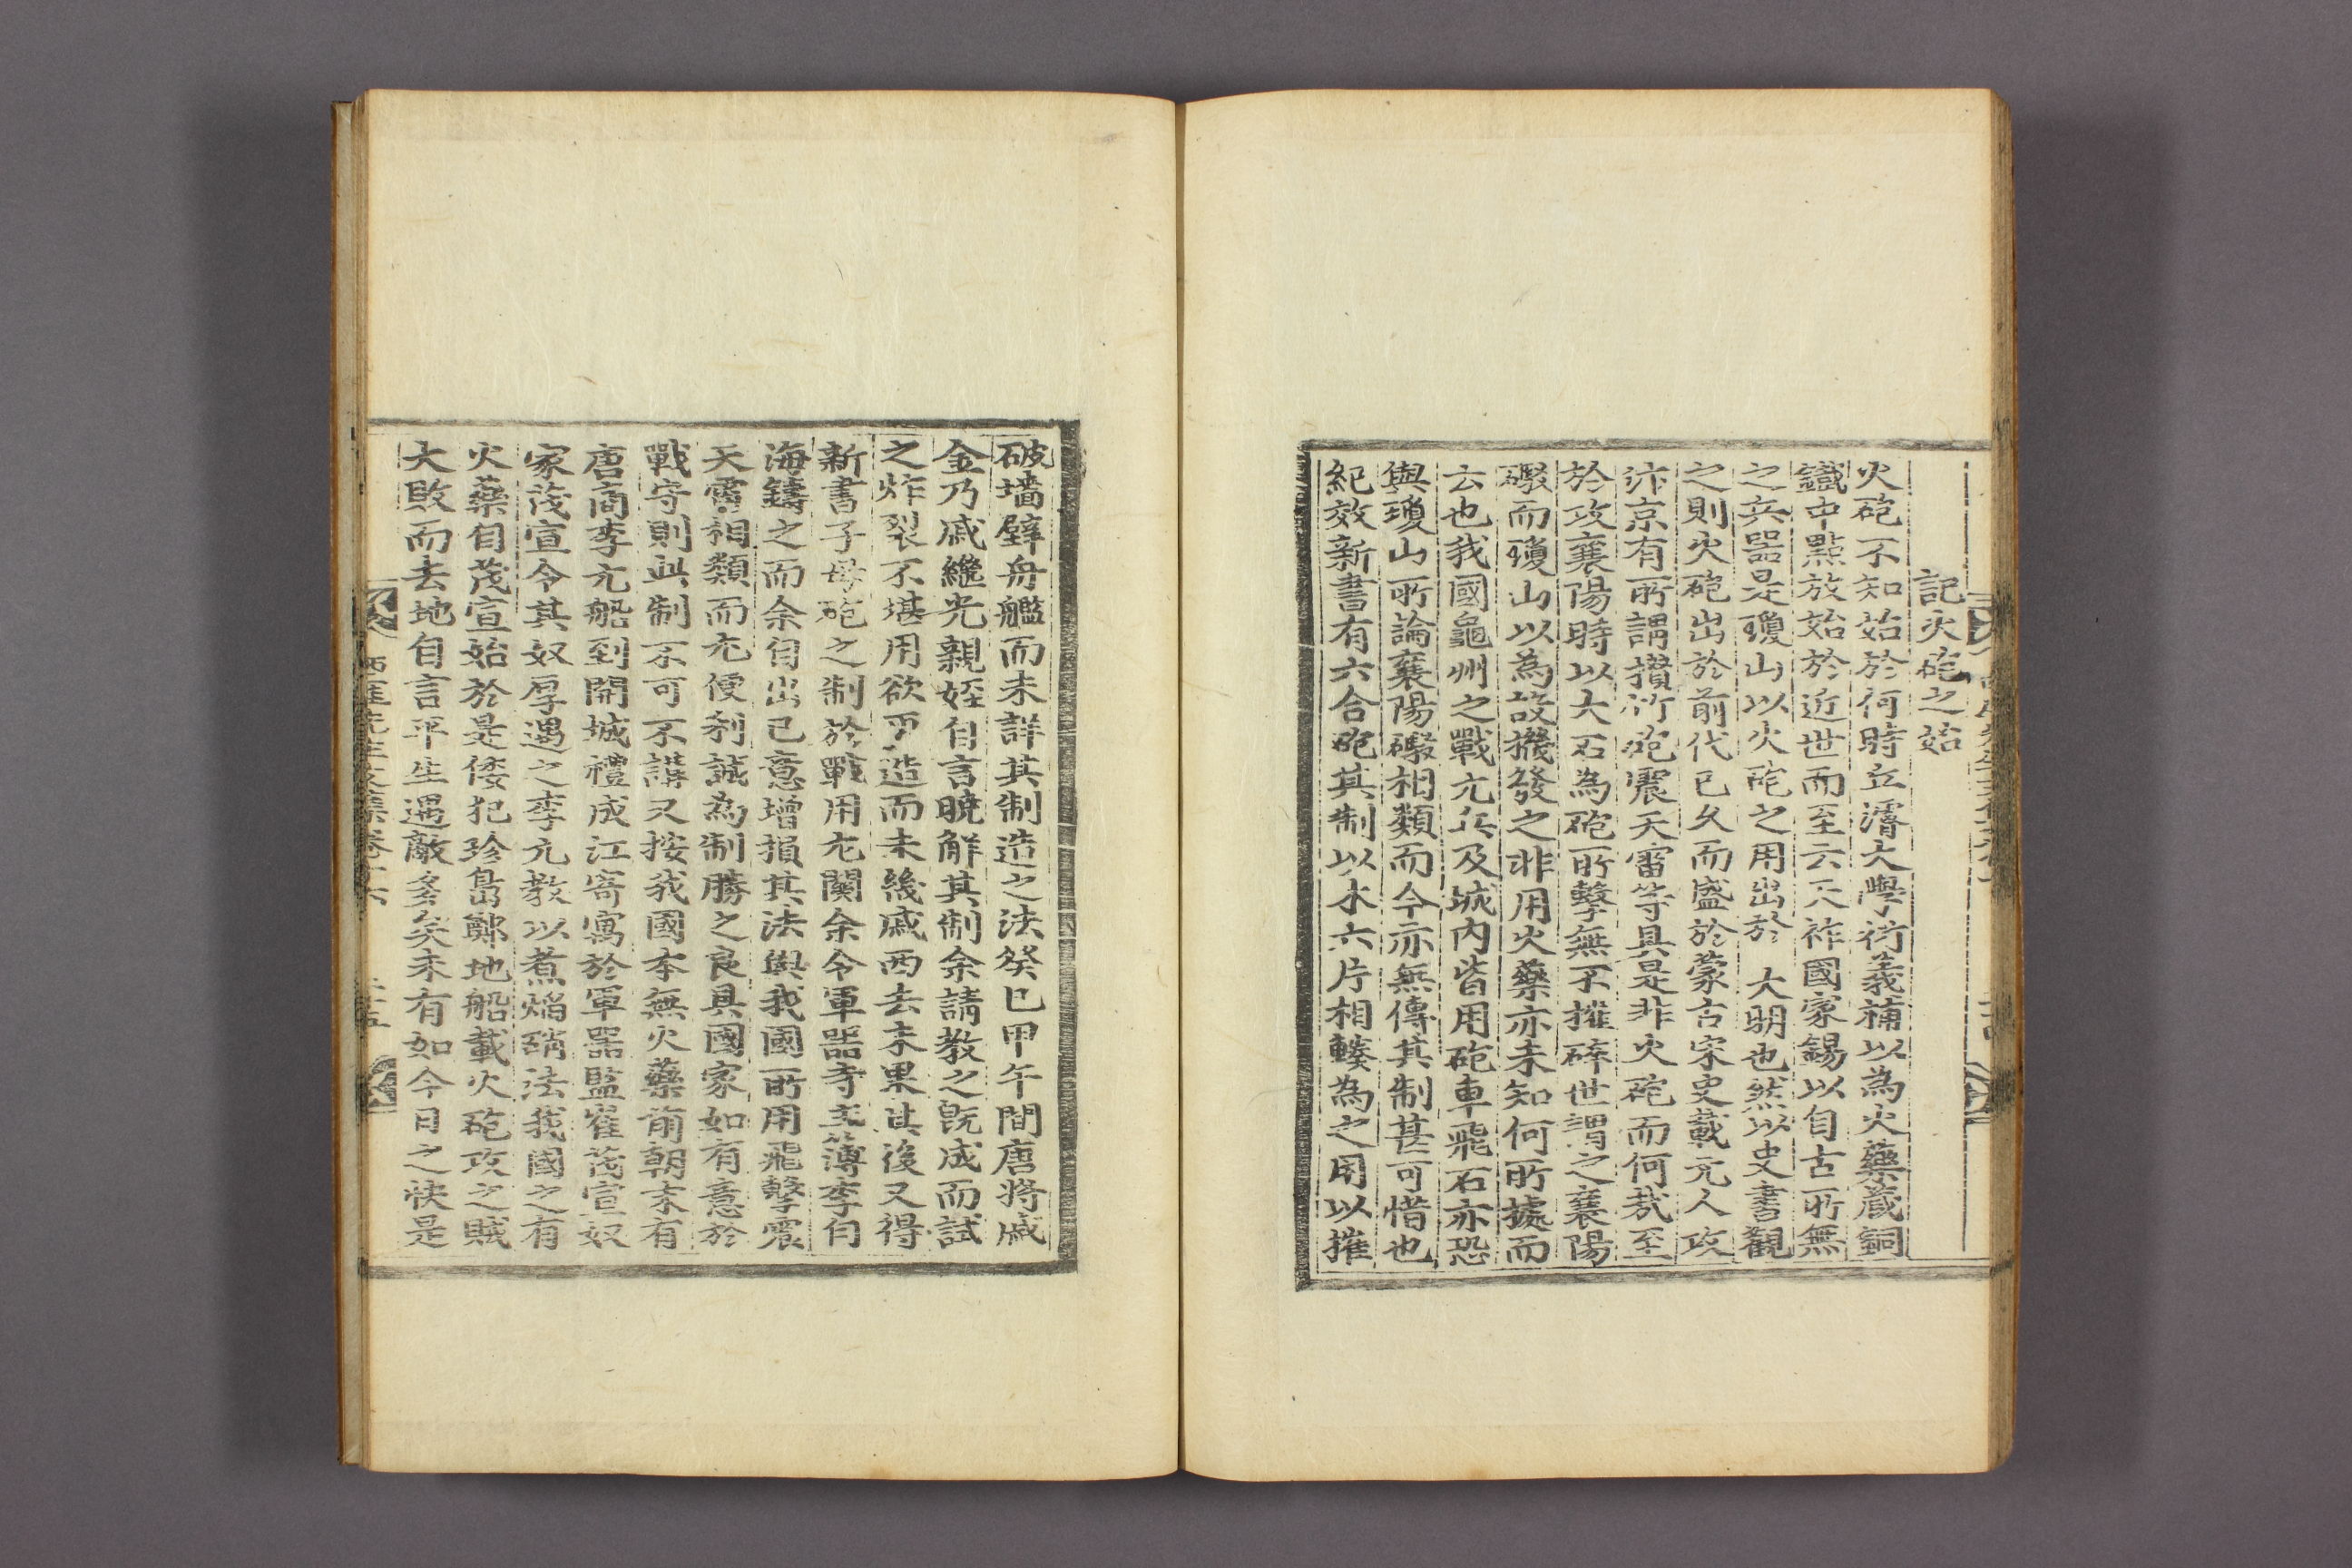 記火砲之始
火砲不知始於何時丘濬大學衍義補以為火藥藏銅
鐵中點放始於近世而至云天祚國家錫以自古所無
之兵器是瓊山以火砲之用出於 大明也然以史書觀
之則火砲出於前代已久而盛於蒙古宋史載元人攻
汴京有所謂攢竹砲震天雷等具是非火砲而何哉至
於攻襄陽時以大石為砲所擊無不摧碎世謂之襄陽
礮而瓊山以為設機發之非用火藥亦未知何所據而
云也我國龜州之戰元兵及城內皆用砲車飛石亦恐
與瓊山所論襄陽礮相類而今亦無傳其制甚可惜也
紀效新書有六合砲其制以木六片相輳為之用以摧
破墻壁舟艦而未詳其制造之法癸巳甲午間唐將戚
金乃戚繼光親姪自言曉解其制余請教之旣成而試
之炸裂不堪用欲更造而未幾戚西去未果其後又得
新書子母砲之制於戰用尤關余令軍器寺主簿李自
海鑄之而余自出己意增損其法與我國所用飛擊震
天雷相類而尤便利誠為制勝之良具國家如有意於
戰守則此制不可不講又按我國本無火藥前朝末有
唐商李元船到開城禮成江寄寓於軍器監崔茂宣奴
家茂宣令其奴厚遇之李元教以煮焰硝法我國之有
火藥自茂宣始於是倭犯珍島鄭地船載火砲攻之賊
大敗而去地自言平生遇敵多矣未有如今日之快是
西厓先生文集卷十六